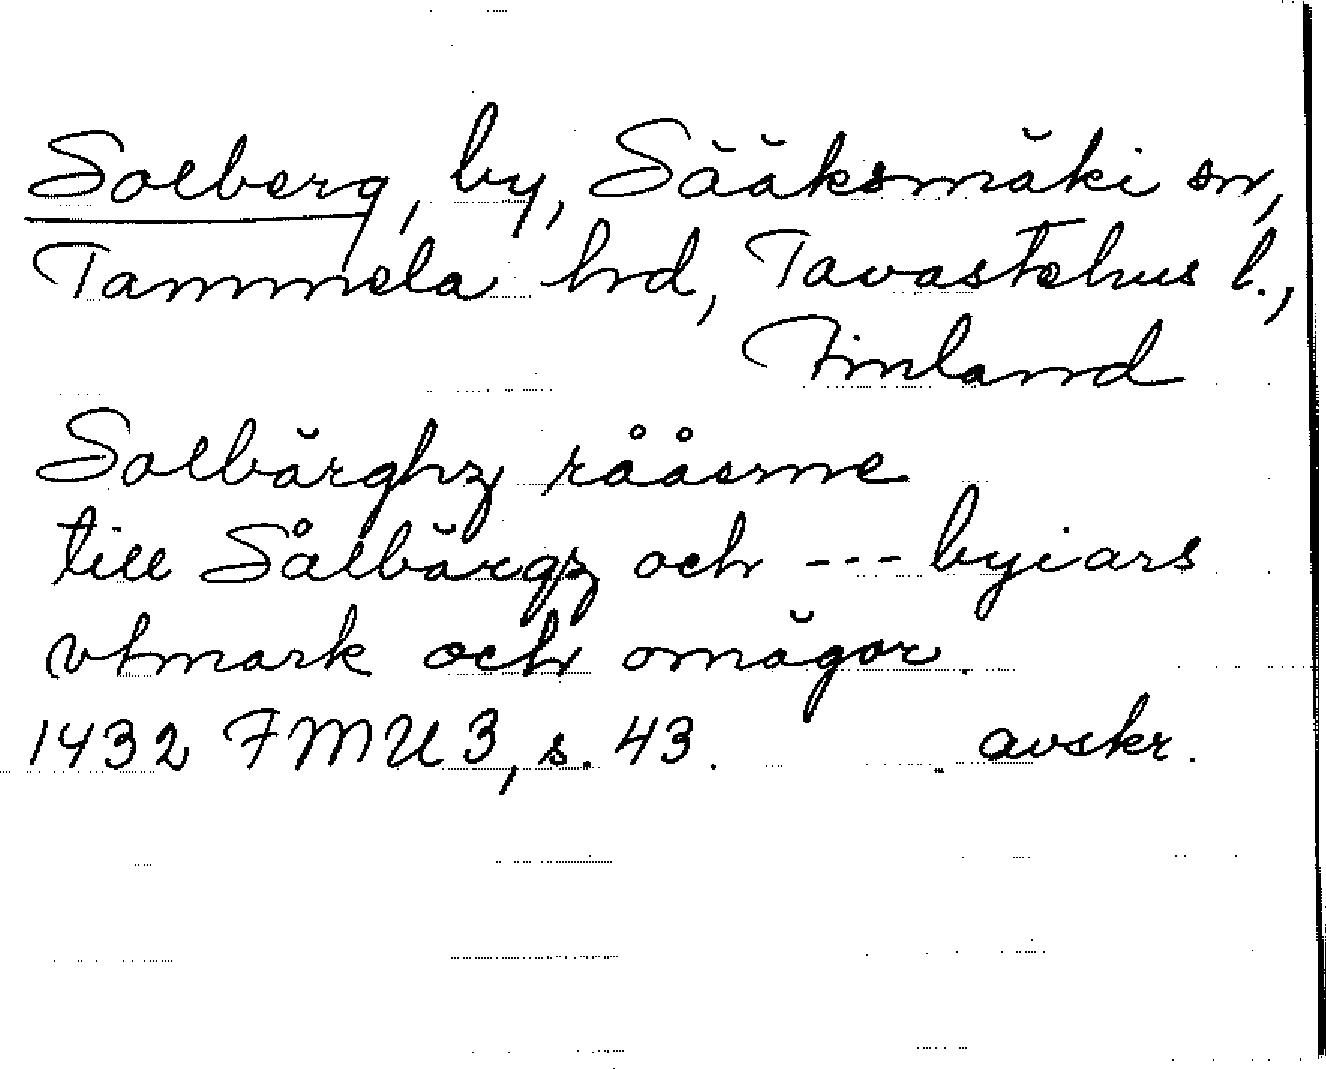 Solberg, by, Sääksmäki sn,
Tammela hd, Tavastehus l.,
Finland
Solbärghz rååerne
till Sålbärgz och --- byiars
vtmark och omägor.
1432 FMU 3, s. 43. avskr.